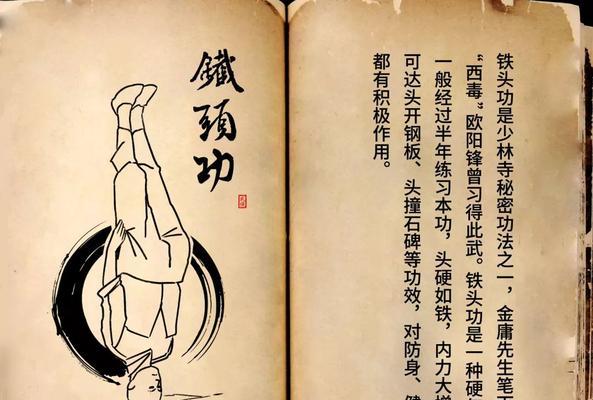 鐵頭功
铁头功是少林寺秘密功法之一，金庸先生笔
“西毒”欧阳锋曾习得此武。铁头功是一种硬
一般经过半年练习本功，头硬如铁，内力大增
可达头开钢板、头撞石碑等功效，对防身、
都有积极作用。